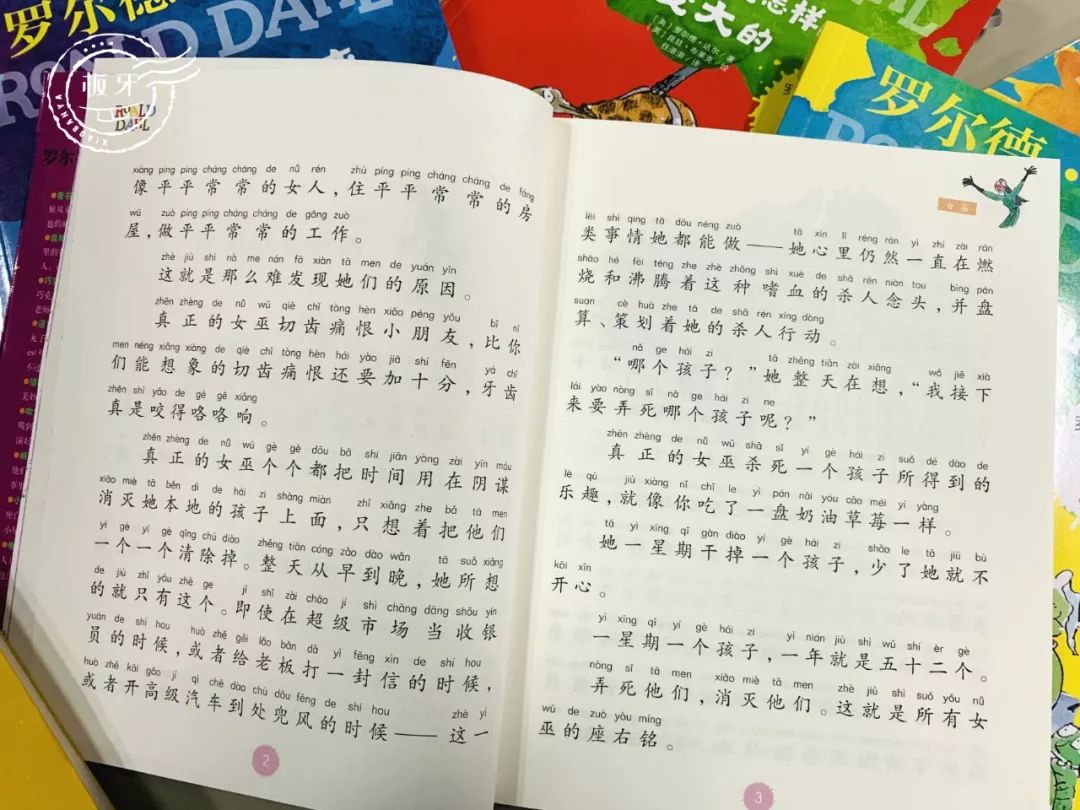 罗尔德
ROALD DAHL
板牙
XIAOBANYA
ROALD
DAHL
怎样
变大的
DAHL
罗尔德
xiàng píng píng cháng cháng de nǚ rén zhù píng píng cháng cháng de fáng
像平平常常的女人，住平平常常的房
wū zuò píng píng cháng cháng de gōng zuò
屋，做平平常常的工作。
zhè jiù shì nà me nán fā xiàn tā men de yuán yīn
这就是那么难发现她们的原因。
zhēn zhèng de nǚ wū qiè chǐ tòng hèn xiǎo péng yǒu bǐ nǐ
真正的女巫切齿痛恨小朋友，比你
men néng xiǎng xiàng de qiè chǐ tòng hèn hái yào jiā shí fēn yá chǐ
们能想象的切齿痛恨还要加十分，牙齿
zhēn shì yǎo de gē gē xiǎng
真是咬得咯咯响。
zhēn zhèng de nǚ wū gè gè dōu bǎ shí jiān yòng zài yīn móu
真正的女巫个个都把时间用在阴谋
xiāo miè tā běn dì de hái zi shàng miàn zhǐ xiǎng zhe bǎ tā men
消灭她本地的孩子上面，只想着把他们
yí gè yí gè qīng chú diào zhěng tiān cóng zǎo dào wǎn tā suǒ xiǎng
一个一个清除掉。整天从早到晚，她所想
de jiù zhǐ yǒu zhè ge jí shǐ zài chāo jí shì chǎng dāng shōu yín
的就只有这个。即使在超级市场当收银
yuán de shí hou huò zhě gěi lǎo bǎn dǎ yì fēng xìn de shí hou
员的时候，或者给老板打一封信的时候，
huò zhě kāi gāo jí qì chē dào chù dōu fēng de shí hou zhè yí
或者开高级汽车到处兜风的时候——这一
2
女巫
lèi shì qing tā dōu néng zuò tā xīn lǐ réng rán yì zhí zài rán
类事情她都能做——她心里仍然一直在燃
shāo hé fèi téng zhe zhè zhǒng shì xuè de shā rén niàn tou bìng pán
烧和沸腾着这种嗜血的杀人念头，并盘
suan cè huà zhe tā de shā rén xíng dòng
算、策划着她的杀人行动。
nǎ ge hái zi tā zhěng tiān zài xiǎng wǒ jiē xià
“哪个孩子？”她整天在想，“我接下
lái yào nòng sǐ nǎ ge hái zi ne
来要弄死哪个孩子呢？”
zhēn zhèng de nǚ wū shā sǐ yí gè hái zi suǒ dé dào de
真正的女巫杀死一个孩子所得到的
lè qù jiù xiàng nǐ chī le yì pán nǎi yóu cǎo méi yí yàng
乐趣，就像你吃了一盘奶油草莓一样。
tā yì xīng qī gàn diào yí gè hái zi shǎo le tā jiù bù
她一星期干掉一个孩子，少了她就不
kāi xīn
开心。
yì xīng qī yí gè hái zi yì nián jiù shì wǔ shí èr gè
一星期一个孩子，一年就是五十二个。
nòng sǐ tā men xiāo miè tā men zhè jiù shì suǒ yǒu nǚ
弄死他们，消灭他们。这就是所有女
wū de zuò yòu míng
巫的座右铭。
3